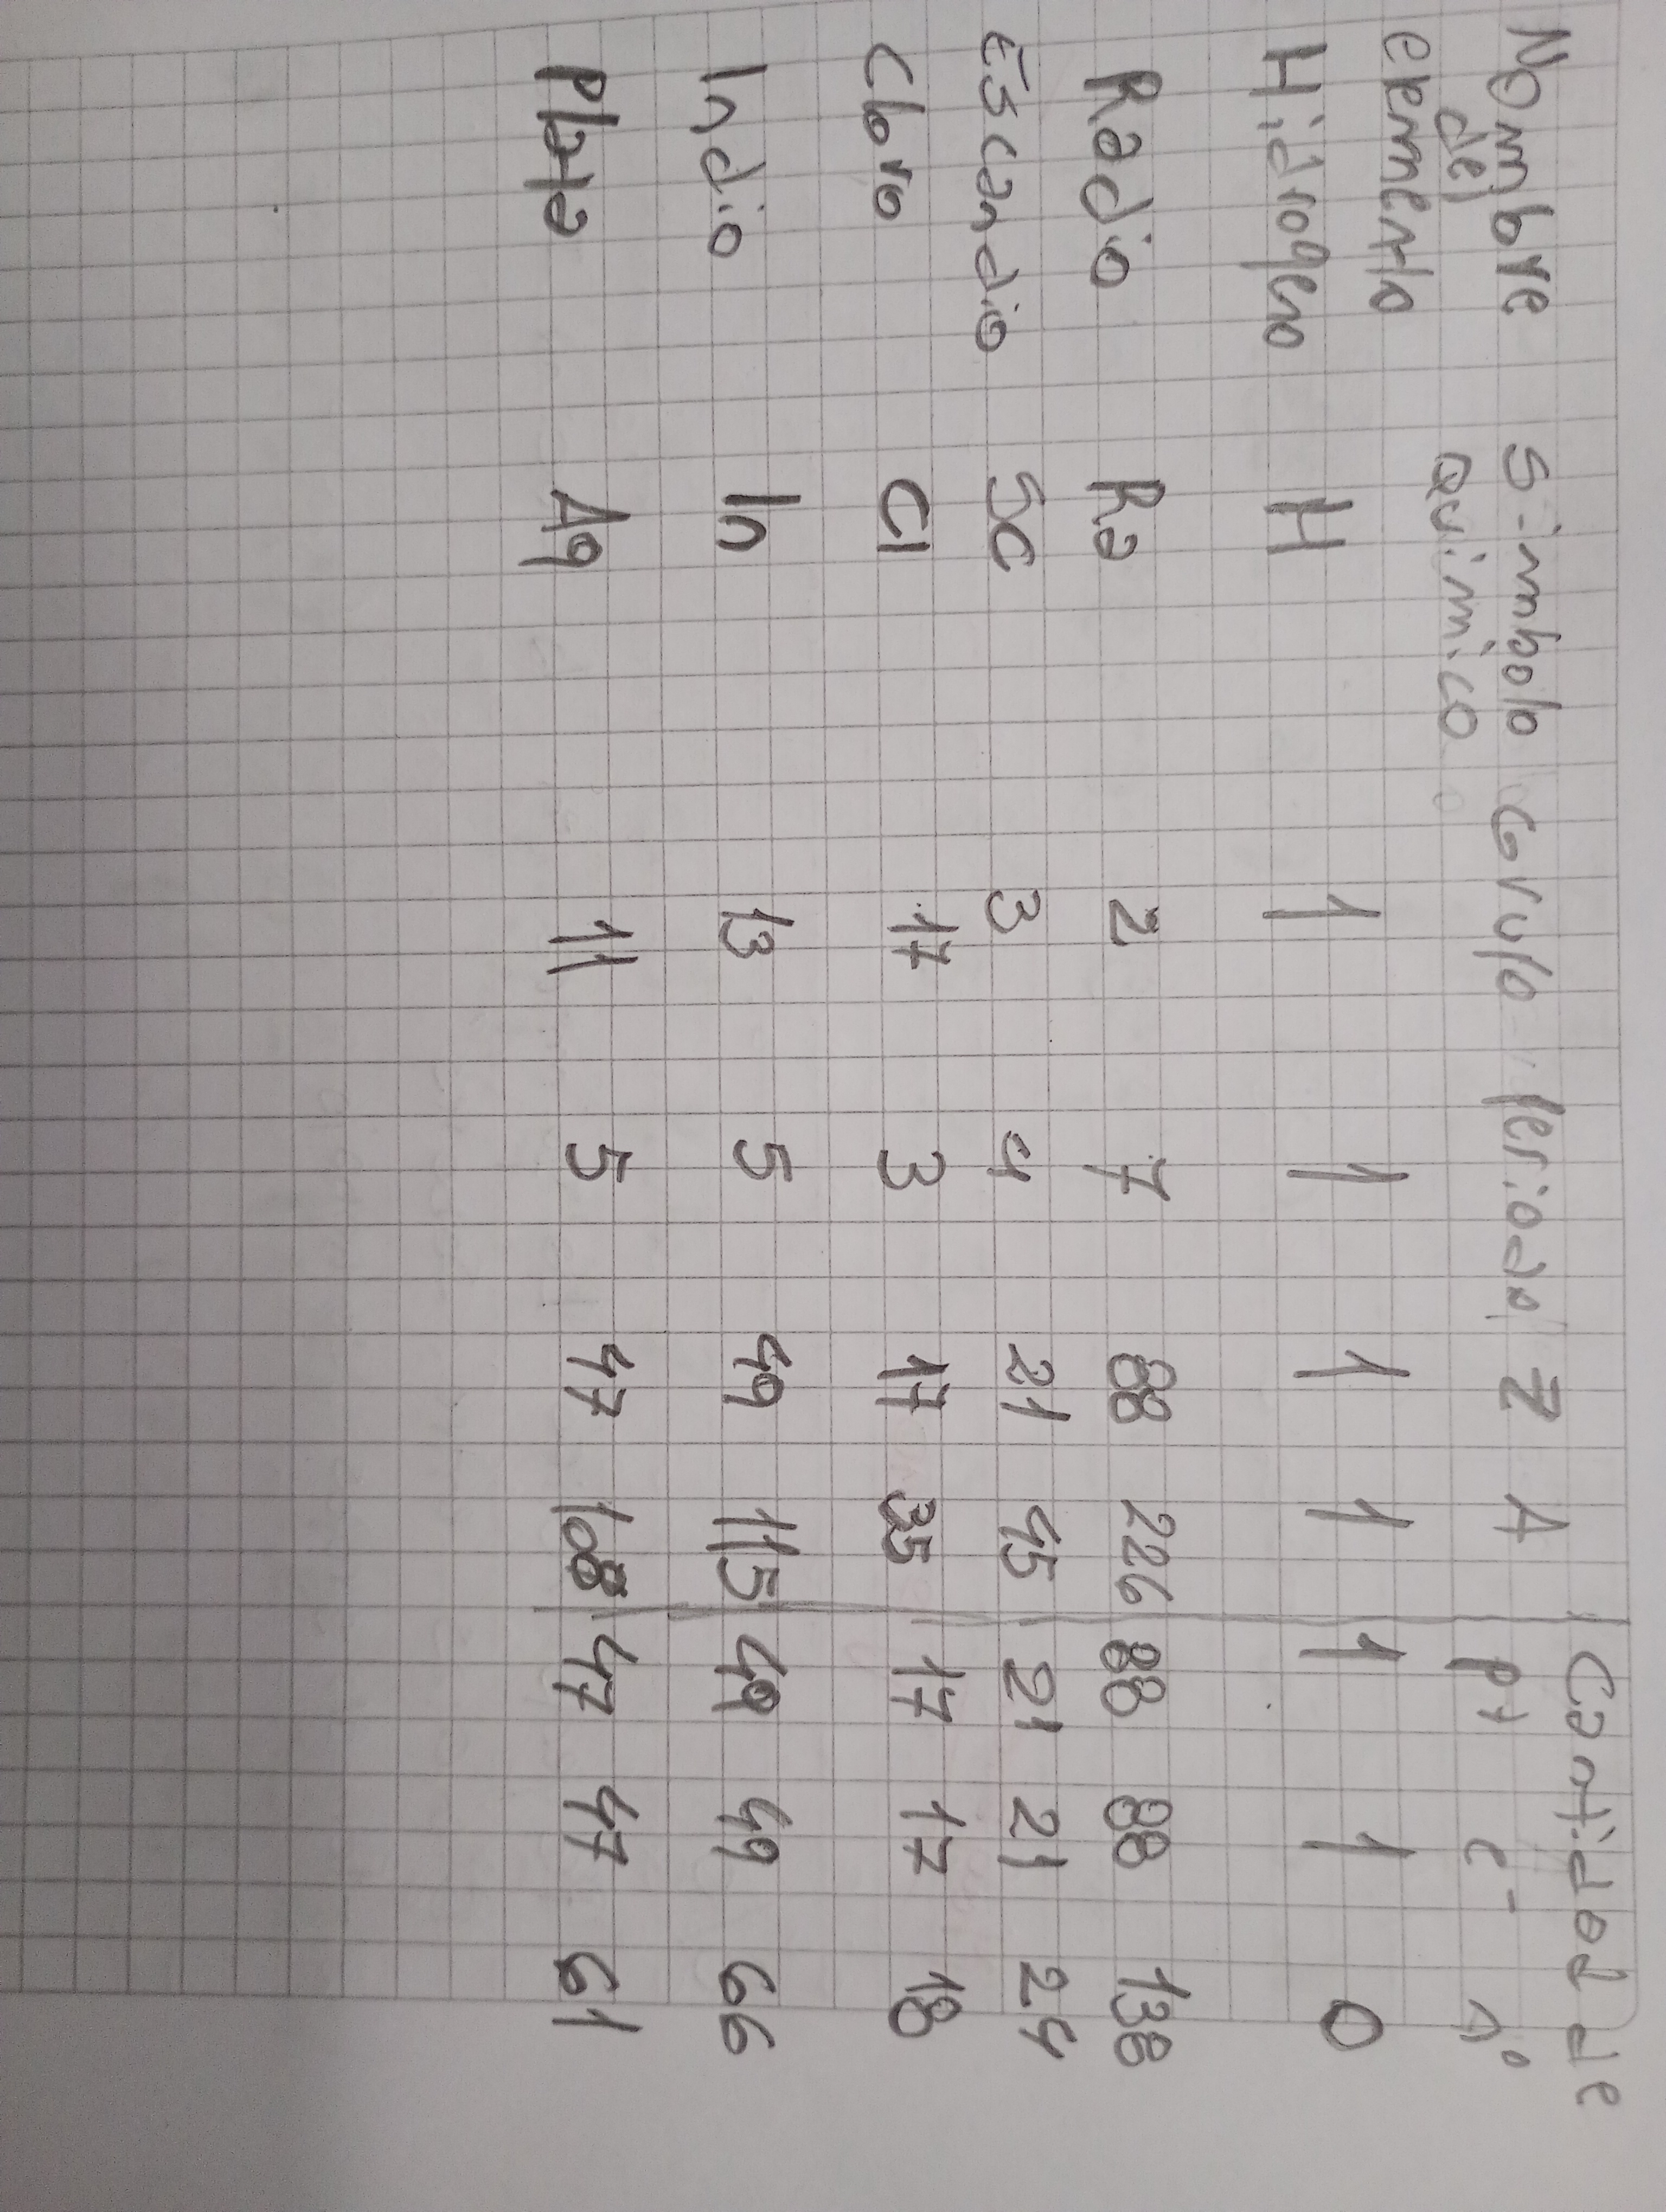 Cantidad de
Nombre Simbolo Grupo Periodo Z A P+ e- n°
del Quimico
elemento
Hidrogeno H 1 1 1 1 1 1 0
Radio Ra 2 7 88 226 88 88 138
Escandio Sc 3 4 21 45 21 21 24
Cloro Cl 17 3 17 35 17 17 18
Indio In 13 5 49 115 49 49 66
Plata Ag 11 5 47 108 47 47 61